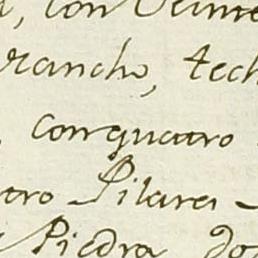 , con Veinte
rancho, tech
, conquatro
tro Pilares
Piedra do